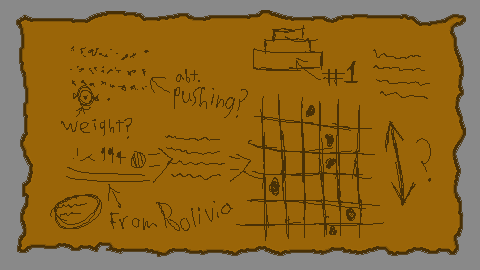 #1
abt.
pushing?
weight?
?
From Bolivia